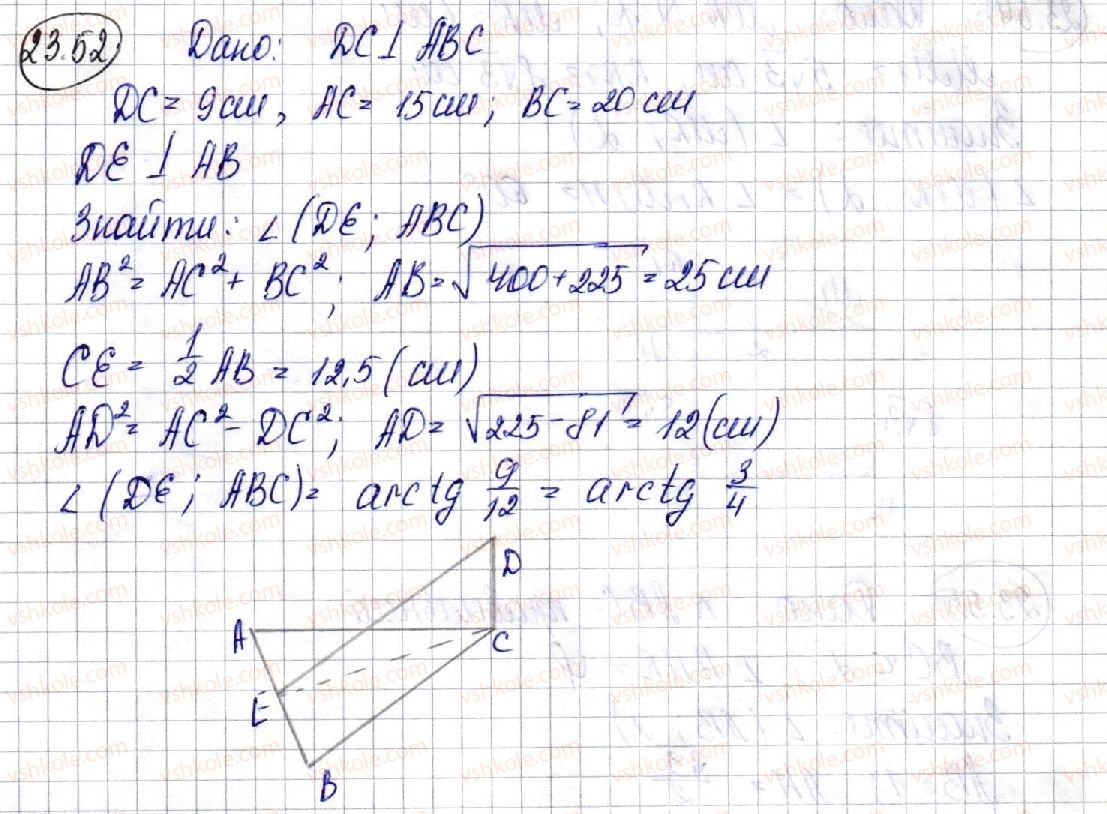 23.52 Дано: DC ⊥ ABC
DC = 9 см, AC = 15 см; BC = 20 см
DE ⊥ AB
Знайти: ∠ (DE; ABC)
AB² = AC² + BC²; AB = √400+225 = 25 см
CE = 1/2 AB = 12,5 (см)
AD² = AC² - DC²; AD = √225-81 = 12 (см)
∠ (DE; ABC) = arctg 9/12 = arctg 3/4
D
A
C
E
B